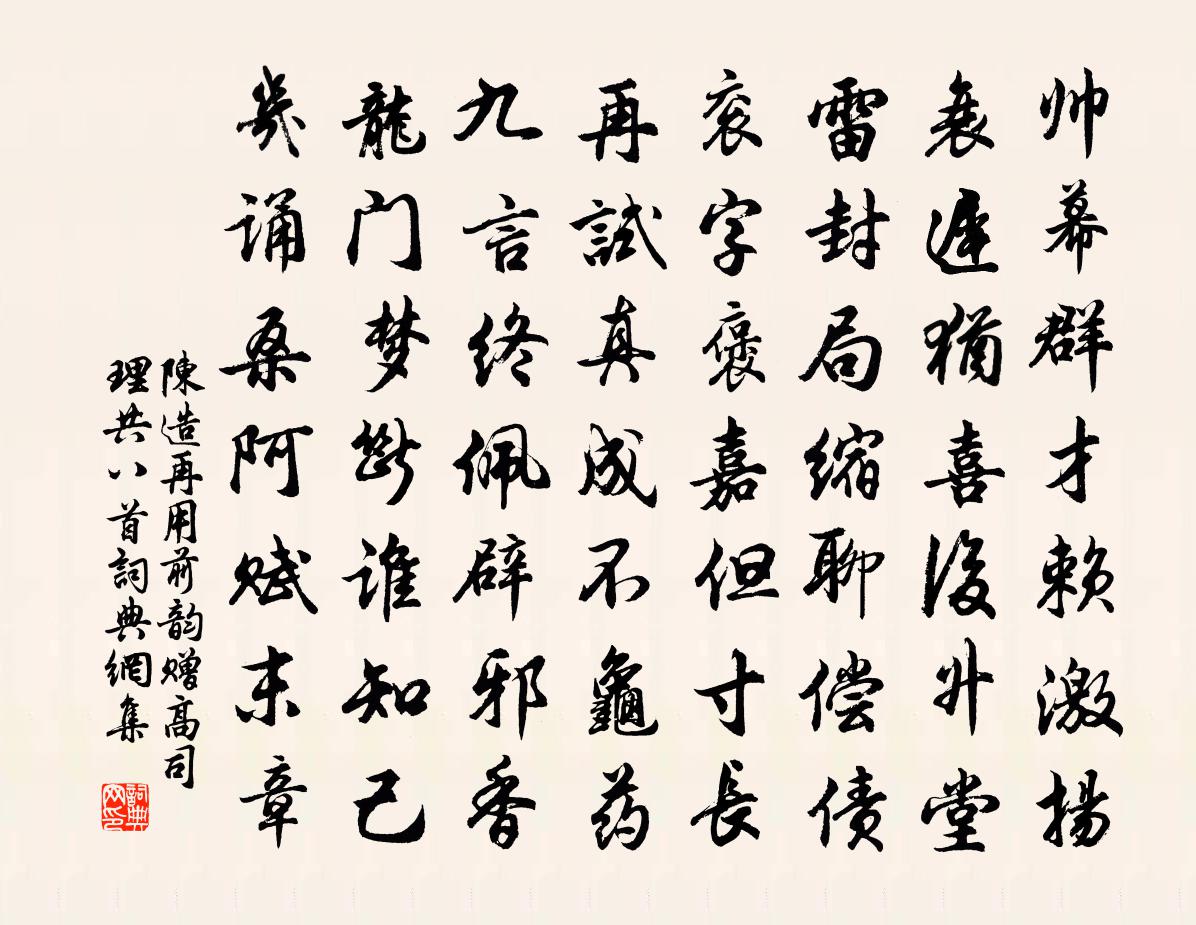 帅幕群才赖激揚
衰遲猶喜後升堂
雷封局缩聊偿债
衮字褒嘉但寸長
再試真成不龜药
九言终佩辟邪香
龍门梦断谁知己
幾诵桑阿赋末章
陳造再用前韵赠高司
理共八首詞典網集
詞典网印